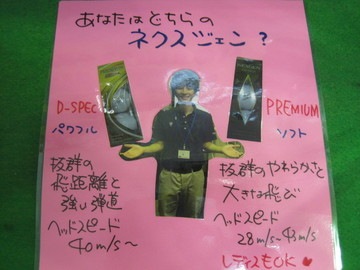 あなたはどちらの
ネクスジェン？
D-SPEC
パワフル
抜群の
飛距離と
強い弾道
ヘッドスピード
40m/s～
PREMIUM
ソフト
抜群のやわらかさと
大きな飛び
ヘッドスピード
28m/s～43m/s
レディスもOK♥